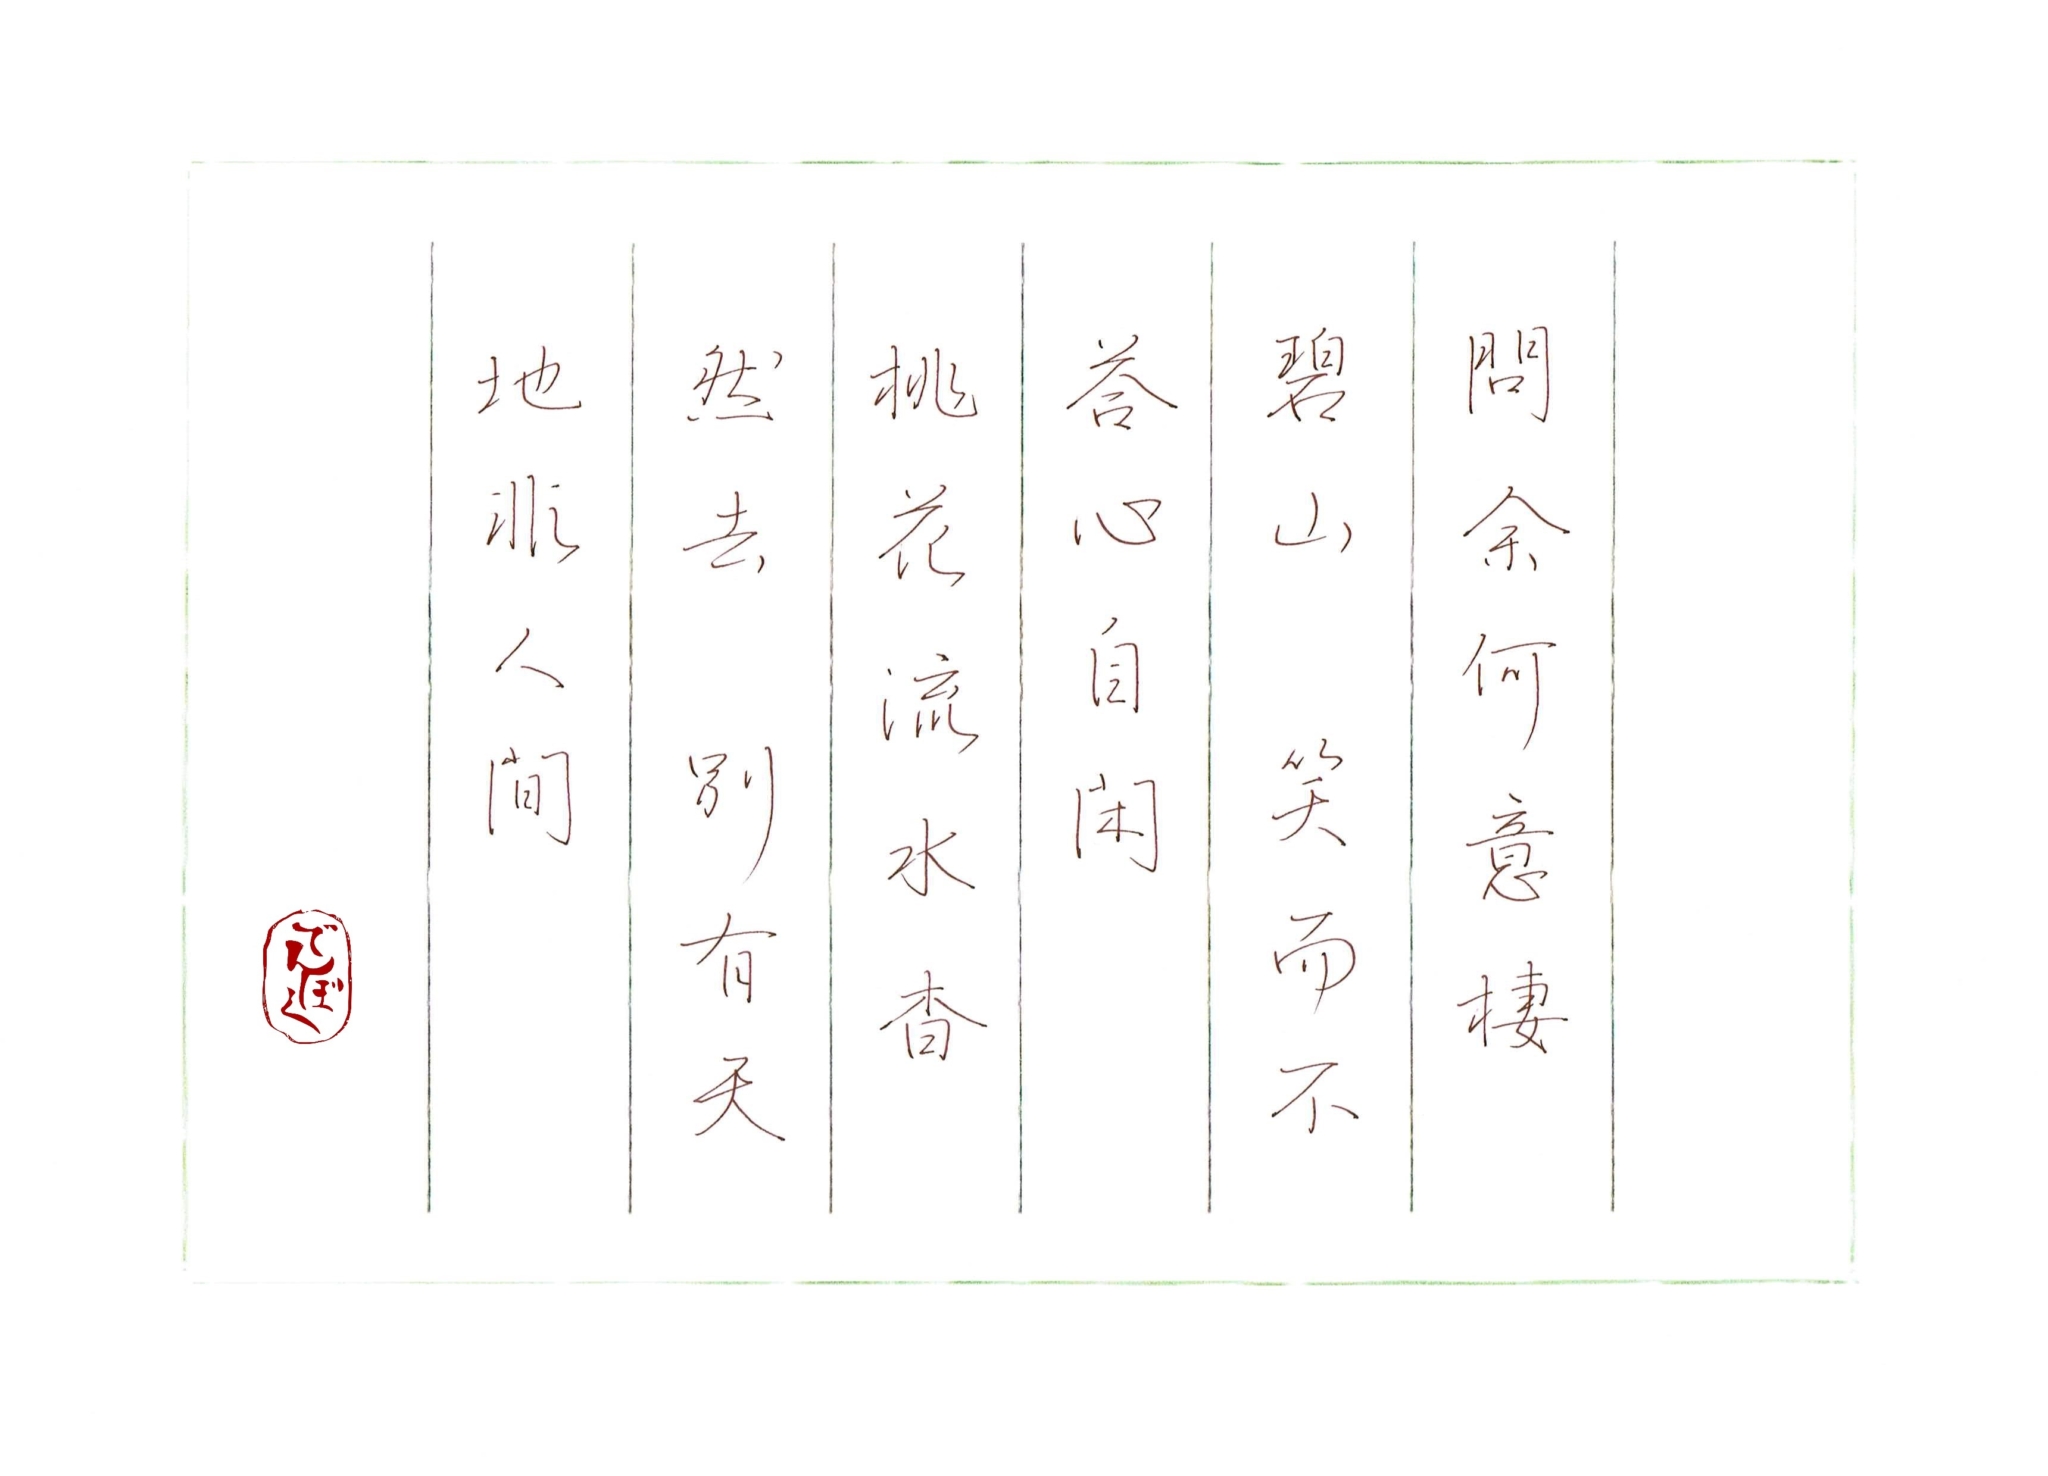 問余何意棲
碧山 笑而不
荅心自閑
桃花流水杳
然去 別有天
地非人間
でんぼく